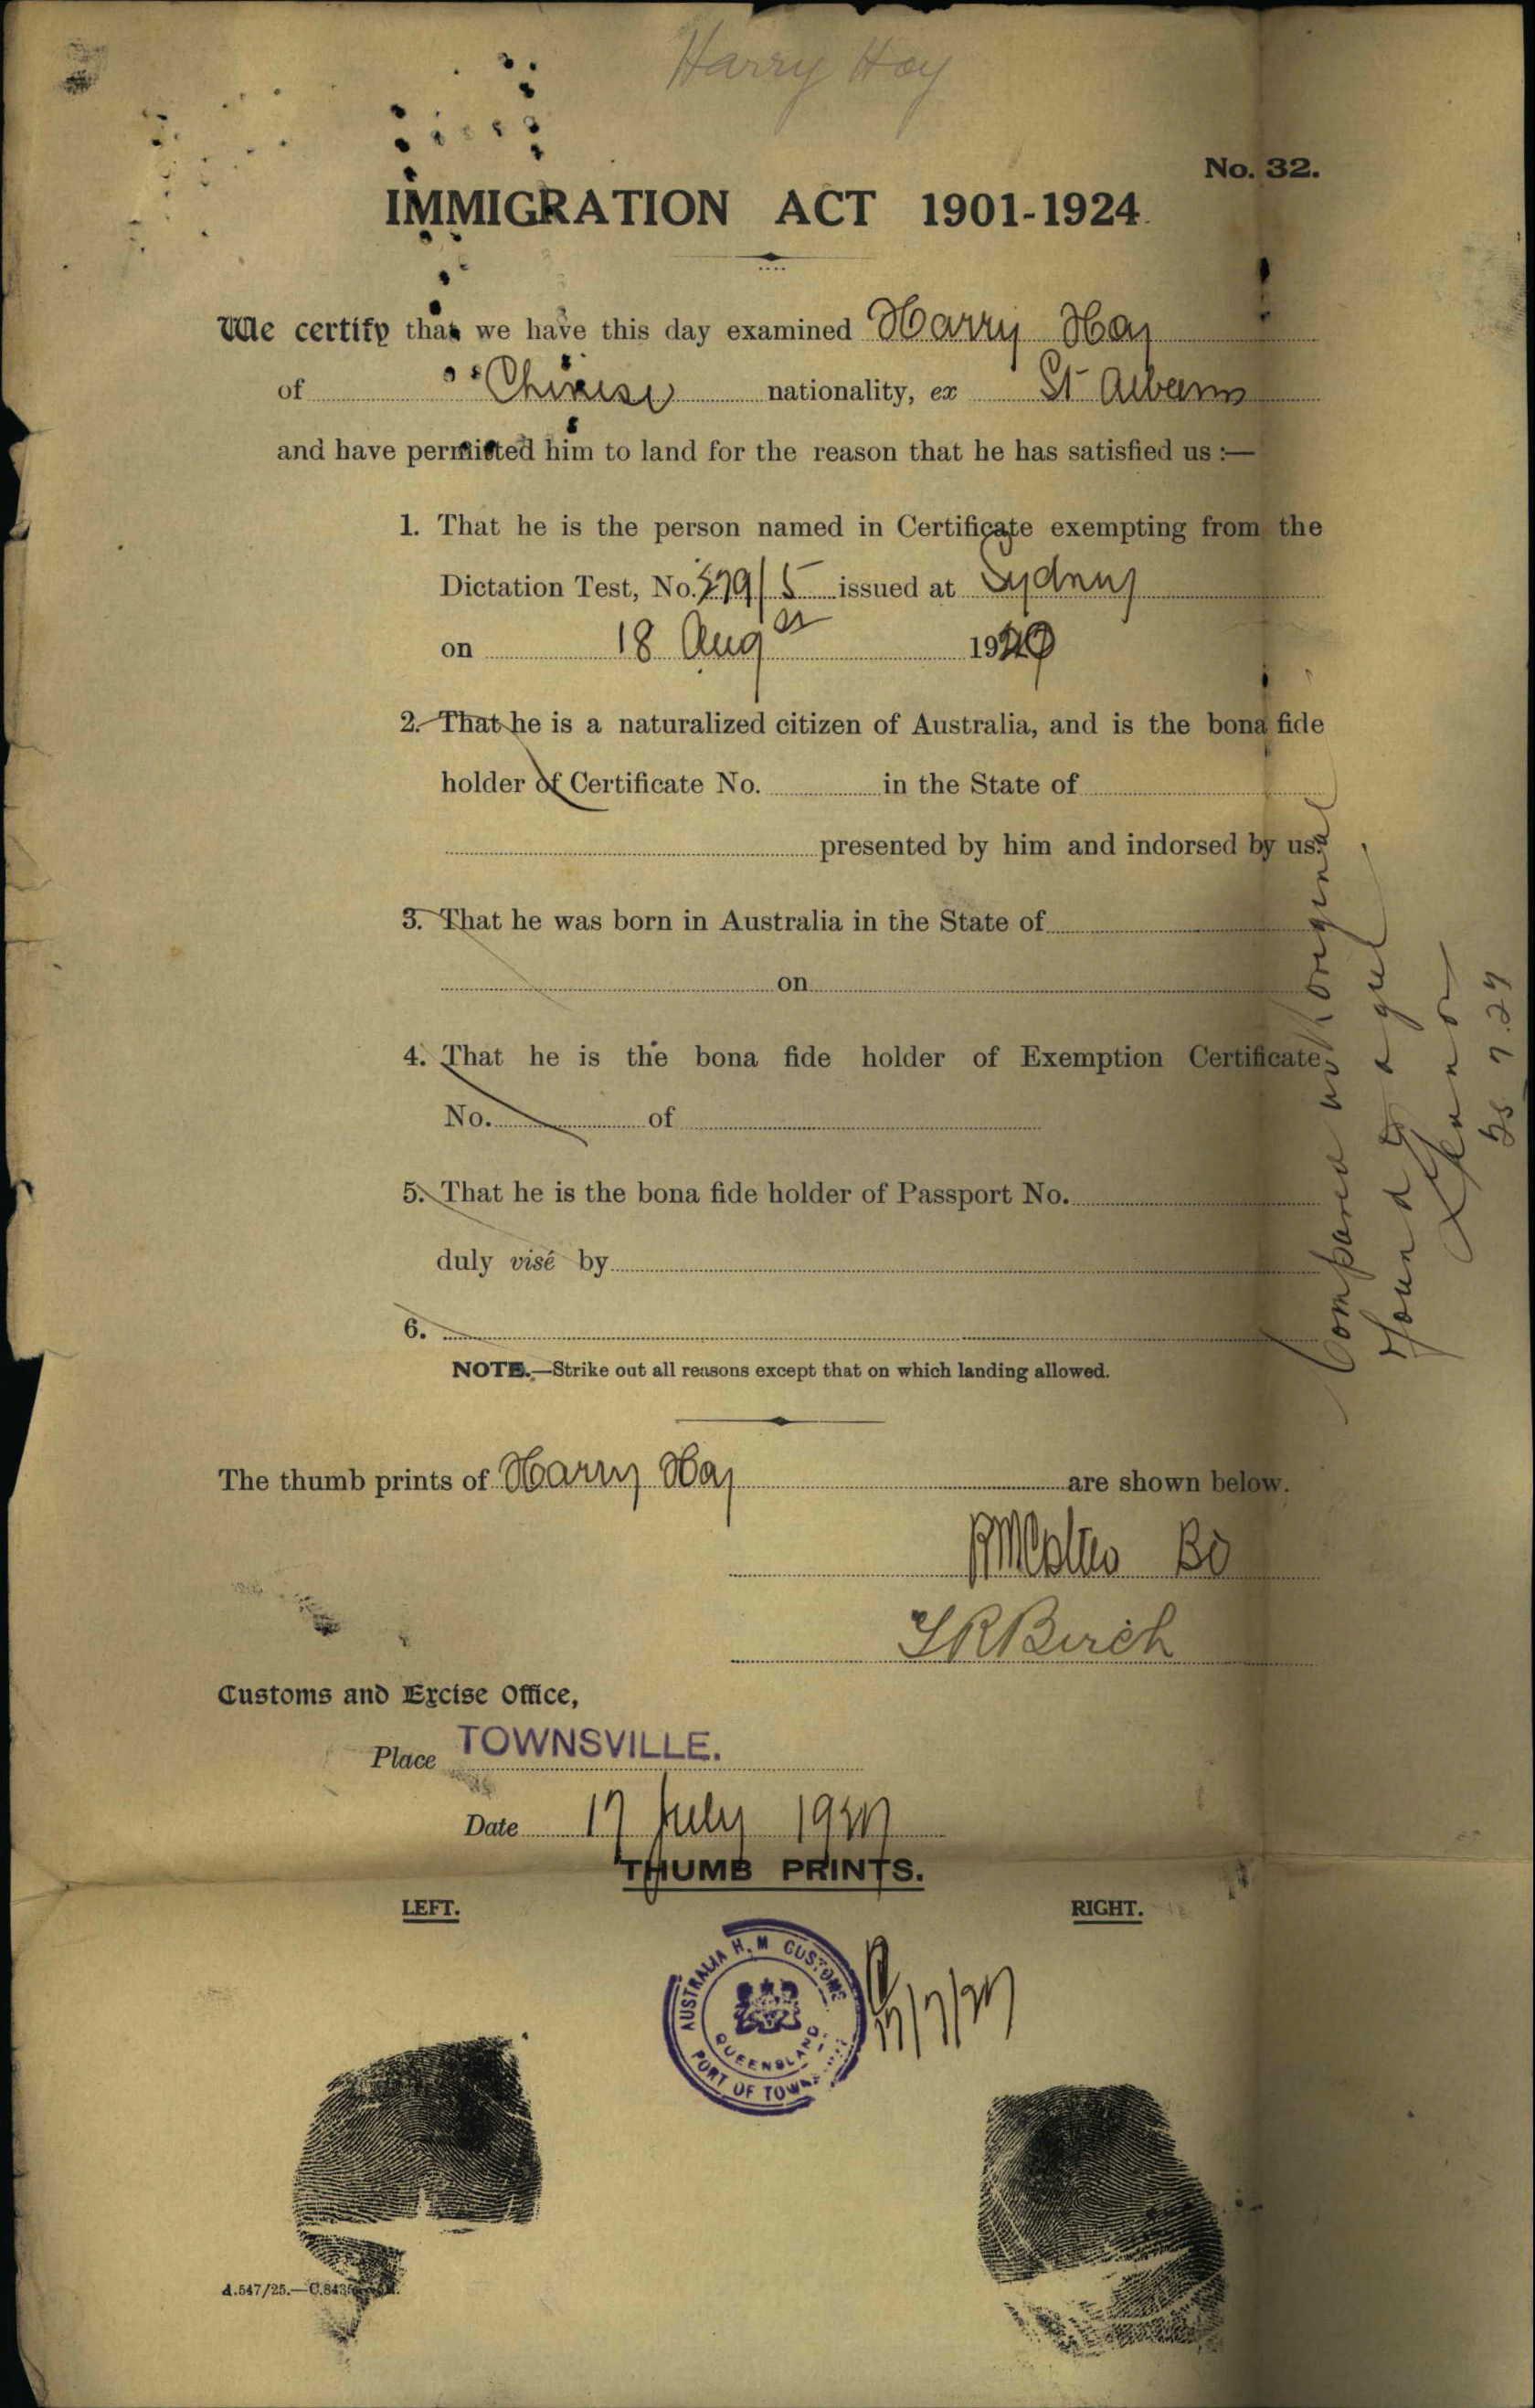 Harry Hoy
No. 32.
IMMIGRATION ACT 1901-1924.
We certify that we have this day examined Harry Hoy
of Chinese nationality, ex St Albans
and have permitted him to land for the reason that he has satisfied us :—
1. That he is the person named in Certificate exempting from the
Dictation Test, No. 579/5 issued at Sydney
on 18 Aug 19
2. That he is a naturalized citizen of Australia, and is the bona fide
holder of Certificate No. in the State of
presented by him and indorsed by us.
3. That he was born in Australia in the State of
on
4. That he is the bona fide holder of Exemption Certificate
No. of
5. That he is the bona fide holder of Passport No.
duly visé by
6.
NOTE.—Strike out all reasons except that on which landing allowed.
Compared with original
found to agree
25.7.27
The thumb prints of Harry Hoy are shown below.
BO
Birch
Customs and Excise Office,
Place TOWNSVILLE.
Date 17 July 1927
THUMB PRINTS.
LEFT. RIGHT.
AUSTRALIA H. M CUSTOMS
QUEENSLAND.
PORT OF
17/7/27
A.547/25.—C.843